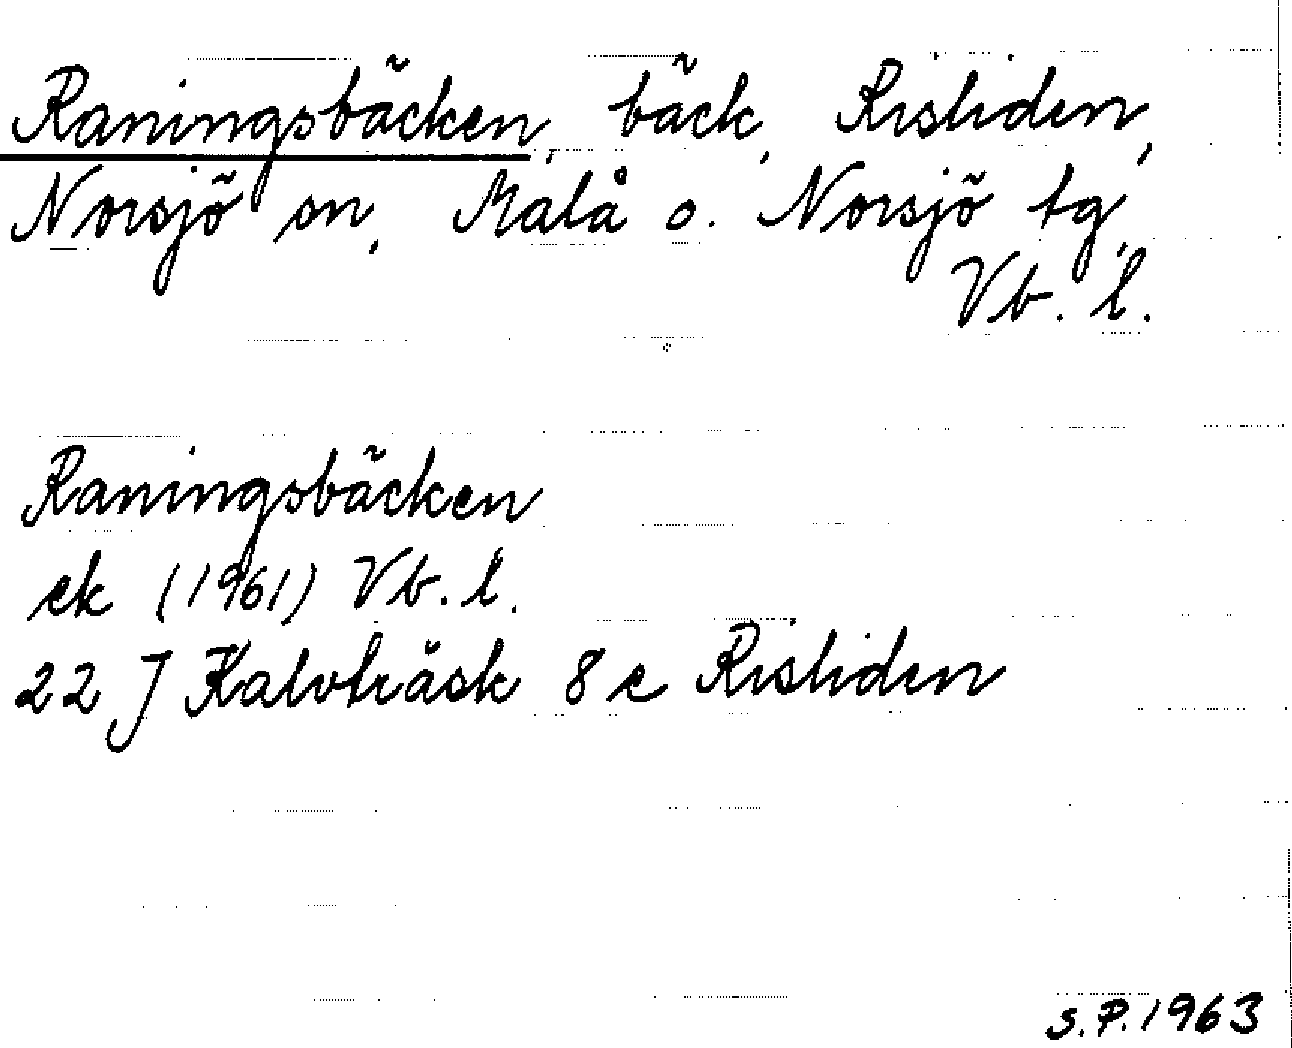 Raningsbäcken, bäck, Risliden,
Norsjö sn, Malå o. Norsjö tg,
Vb. l.
Raningsbäcken
ek (1961) Vb. l.
22 J Kalvträsk 8 e Risliden
S.P. 1963